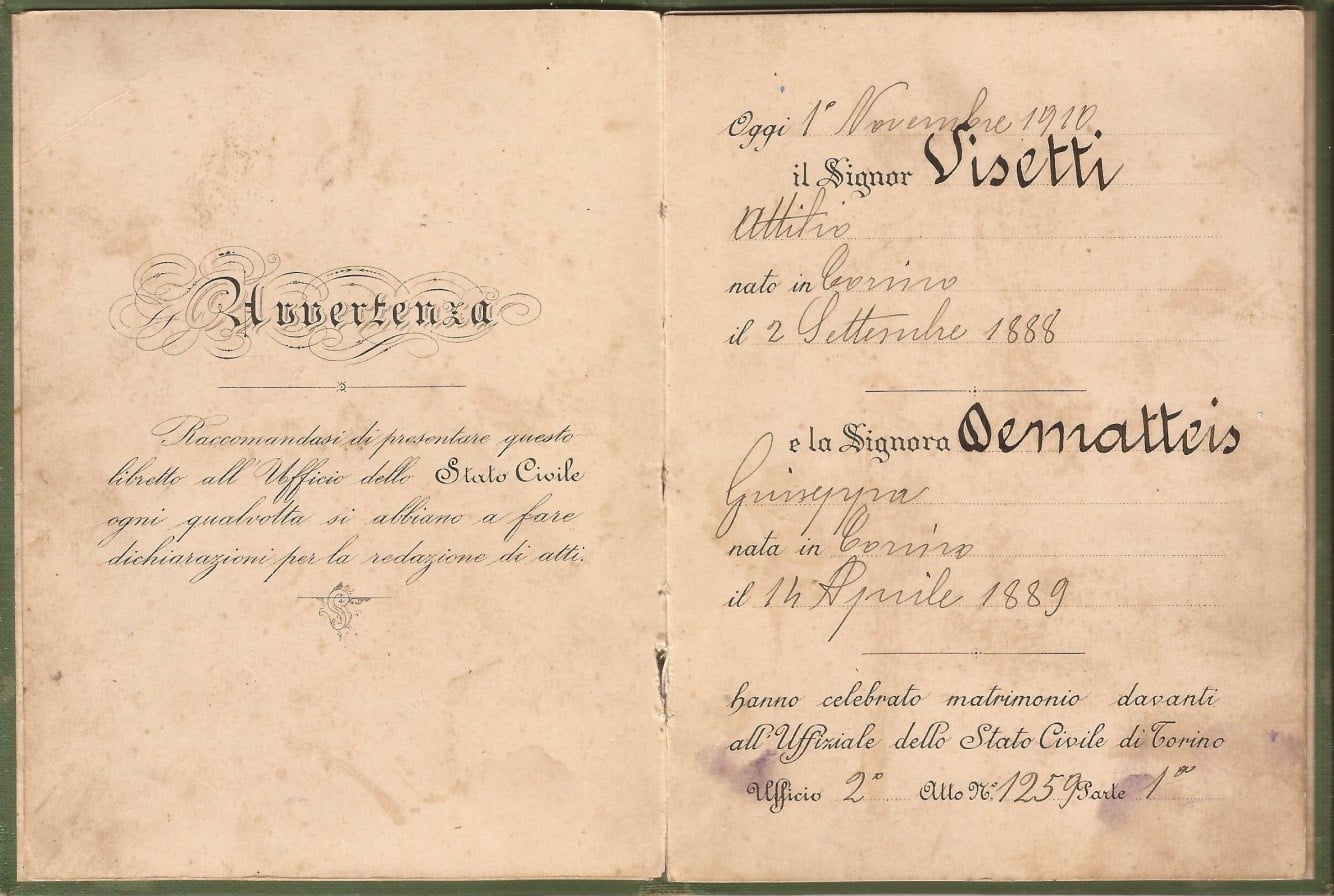 Avvertenza
Raccomandasi di presentare questo
libretto all'Ufficio dello Stato Civile
ogni qualvolta si abbiano a fare
dichiarazioni per la redazione di atti.
Oggi 1° Novembre 1910
il Signor Visetti
Attilio
nato in Torino
il 2 Settembre 1888
e la Signora Dematteis
Giuseppa
nata in Torino
il 14 Aprile 1889
hanno celebrato matrimonio davanti
all'Uffiziale dello Stato Civile di Torino
Ufficio 2° Atto N.° 1259 Parte 1ª